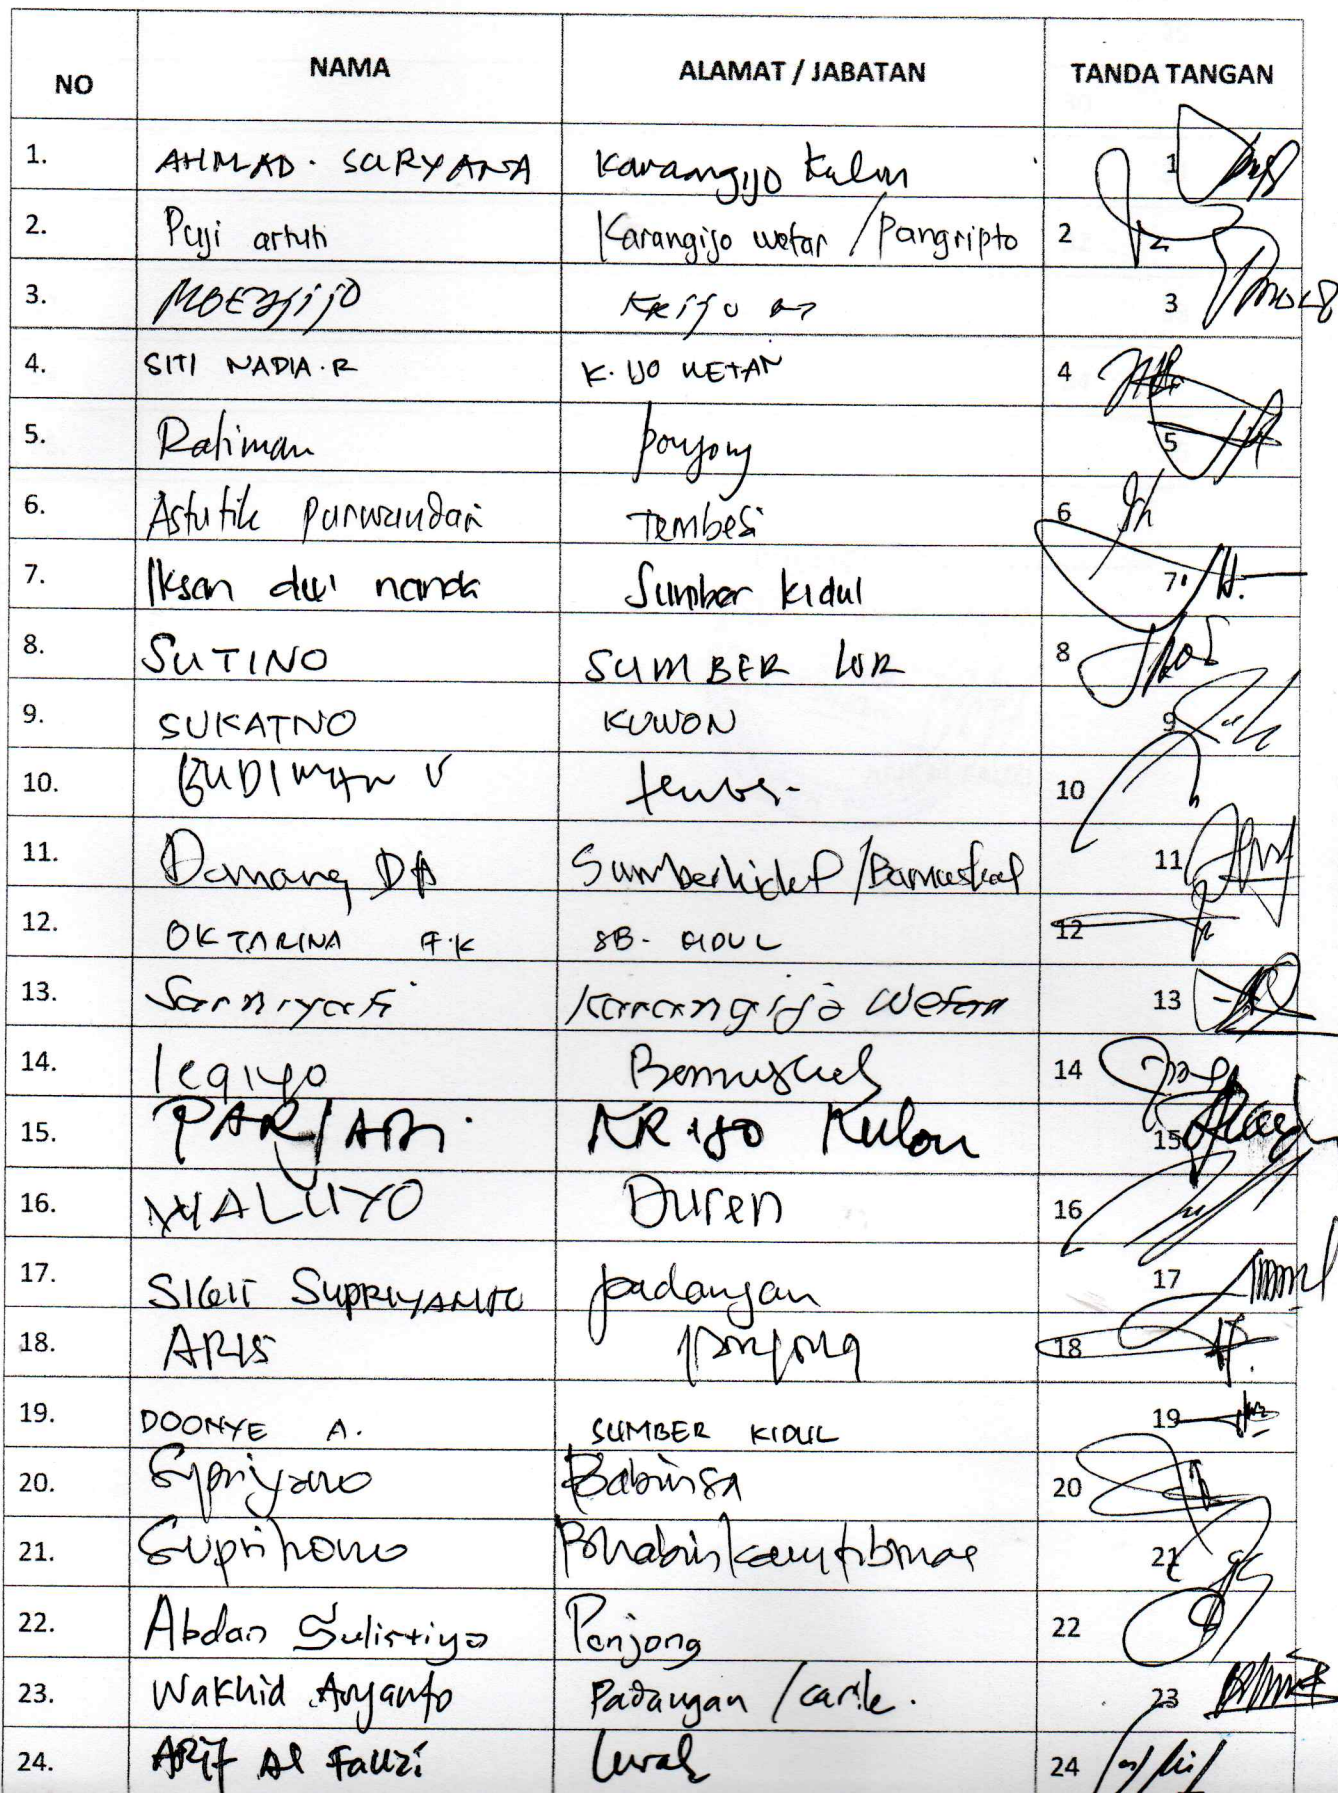 NO NAMA ALAMAT / JABATAN TANDA TANGAN
1. AHMAD. SURYANA Karaangijo Kulon 1
2. Puji artuti Karangijo wetan / Pangripto 2
3. MOERJIJO 3
4. SITI NADIA.R K. IJO WETAN 4
5. Ratiman Ponjong 5
6. Astutik Purwandari Tembesi 6
7. Iksan dwi nanda Sumber kidul 7
8. SUTINO SUMBER LOR 8
9. SUKATNO KUWON 9
10. BUDIMAN 10
11. Danang DA Sumberkidul / Bamuskal 11
12. OKTARINA F.K SB. KIDUL 12
13. Sarniyati Karangijo Wetan 13
14. Legiyo Bamuskal 14
15. PARJAN KR ijo Kulon 15
16. WALUYO Duren 16
17. SIGIT SUPRIYANTO padangan 17
18. ARIS ponjong 18
19. DOONYE A. SUMBER KIDUL 19
20. Supriyano Babinsa 20
21. Suprihono Bhabinkamtibmas 21
22. Abdan Sulistiyo Ponjong 22
23. Wakhid Aryanto Padangan / carik. 23
24. ARIF Al Fauzi Lurah 24